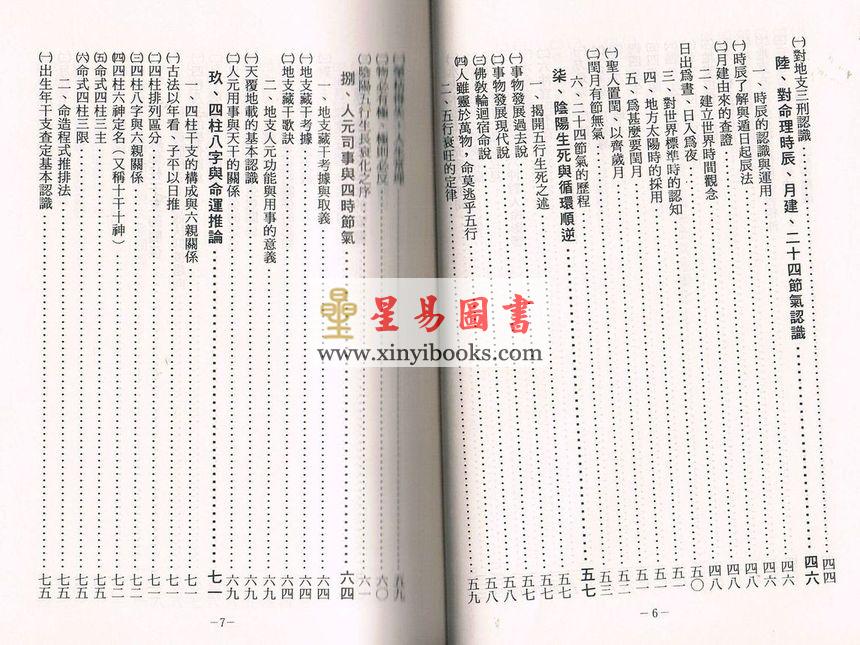 ㈠對地支三刑認識 四四
陸、對命理時辰、月建、二十四節氣認識 四六
一、時辰的認識與運用 四六
㈠時辰了解與遁日起辰法 四六
㈡月建由來的查證 四八
二、建立世界時間觀念 四八
日出爲晝、日入爲夜 四八
三、對世界標準時的認知 五〇
四、地方太陽時的採用 五一
五、爲甚麼要閏月 五一
㈠聖人置閏、以齊歲月 五二
㈡閏月有節無氣 五三
六、二十四節氣的歷程
柒、陰陽生死與循環順逆 五七
一、揭開五行生死之述 五七
㈠事物發展過去說 五七
㈡事物發展現代說 五七
㈢佛教輪迴宿命說 五八
㈣人雖靈於萬物,命莫逃乎五行 五八
二、五行衰旺的定律 五九
－6－
五九
㈡物必有極、極則必反 六〇
㈢陰陽五行生長衰化之序 六一
捌、人元司事與四時節氣 六四
一、地支藏干考據與取義 六四
㈠地支藏干考據 六四
㈡地支藏干歌訣 六四
二、地支人元功能與用事的意義 六九
㈠天覆地載的基本認識 六九
㈡人元用事與天干的關係 六九
玖、四柱八字與命運推論 七一
一、四柱干支的構成與六親關係 七一
㈠古法以年看、子平以日推 七一
㈡四柱排列區分 七一
㈢四柱八字與六親關係 七二
㈣四柱六神定名(又稱十干十神) 七二
㈤命式四柱三主 七五
㈥命式四柱三限 七五
二、命造程式推排法 七五
㈠出生年干支查定基本認識 七五
－7－
星易圖書
www.xinyibooks.com